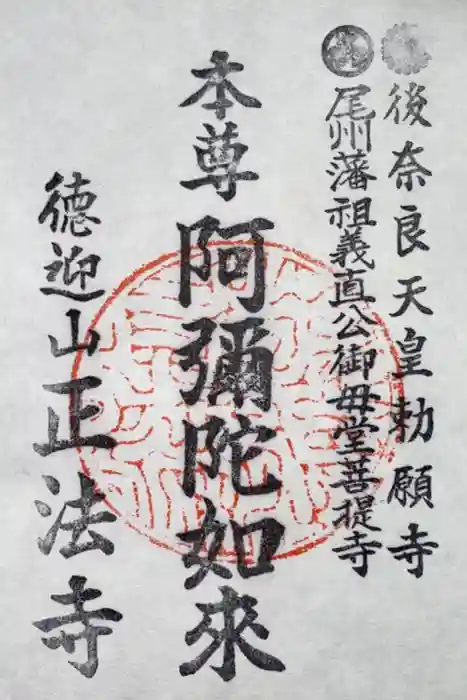 後奈良天皇勅願寺
尾州藩祖義直公御母堂菩提寺
本尊阿彌陀如來
徳迎山正法寺